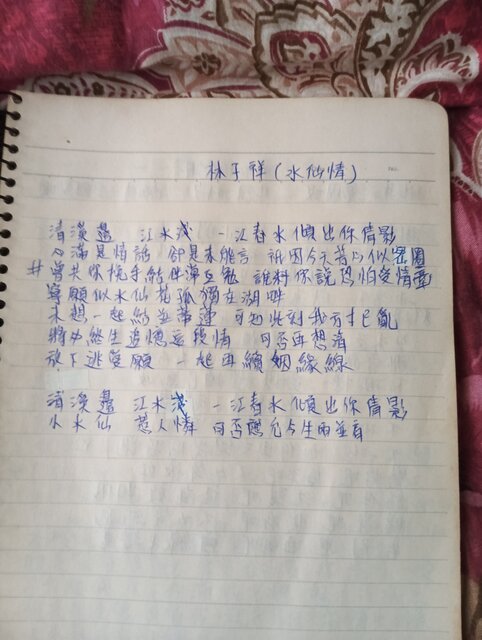 林子祥(水仙情)
清溪邊 江水淺 一江春水傾出你倩影
心滿是情話 卻是未能言 祇因今天昔日似
# 曾共你挽手結伴 誰料你說恐怕愛情
寧願似水仙花孤獨在湖畔
未想一起結並蒂蓮 可知此刻我方寸已亂
將此終生追憶這段情 可否再想清
放下逃愛願 一起再續姻緣線
清溪邊 江水淺 一江春水傾出你倩影
小水仙 惹人憐 可否應允今生兩並肩